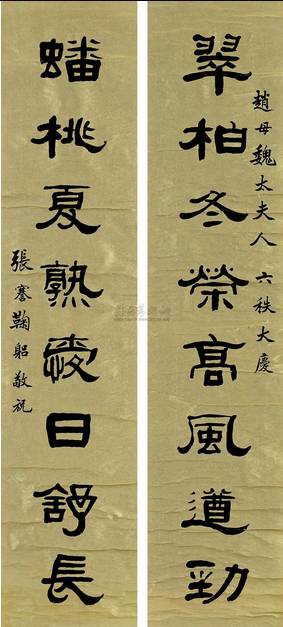 趙母魏太夫人 六秩大慶
翠柏冬榮高風遒勁
蟠桃夏熟愛日舒長
張謇鞠躳敬祝